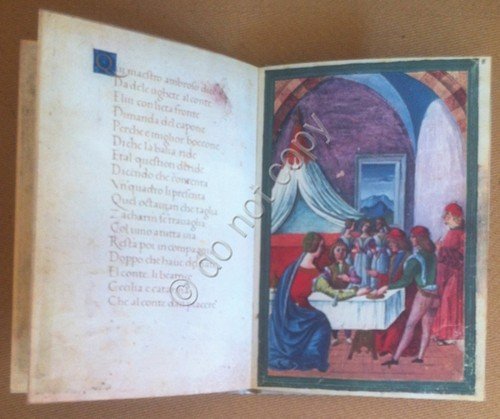 Qui maestro ambroso
Da dele ughete al conte
El in con lieta fronte
Dimanda del capone
Perche e miglior boccone
Di che la balia ride
Era l question deride
Dicendo che contenta
Un quadro li presenta
Quel octauian che taglia
Zacharin se trauaglia
Col uno a tuta uia
Resta poi in compagnia
Doppo che hauc
El conte. li beatrice
Cecilia e catarina
Che al conte dan piacere
© do not copy